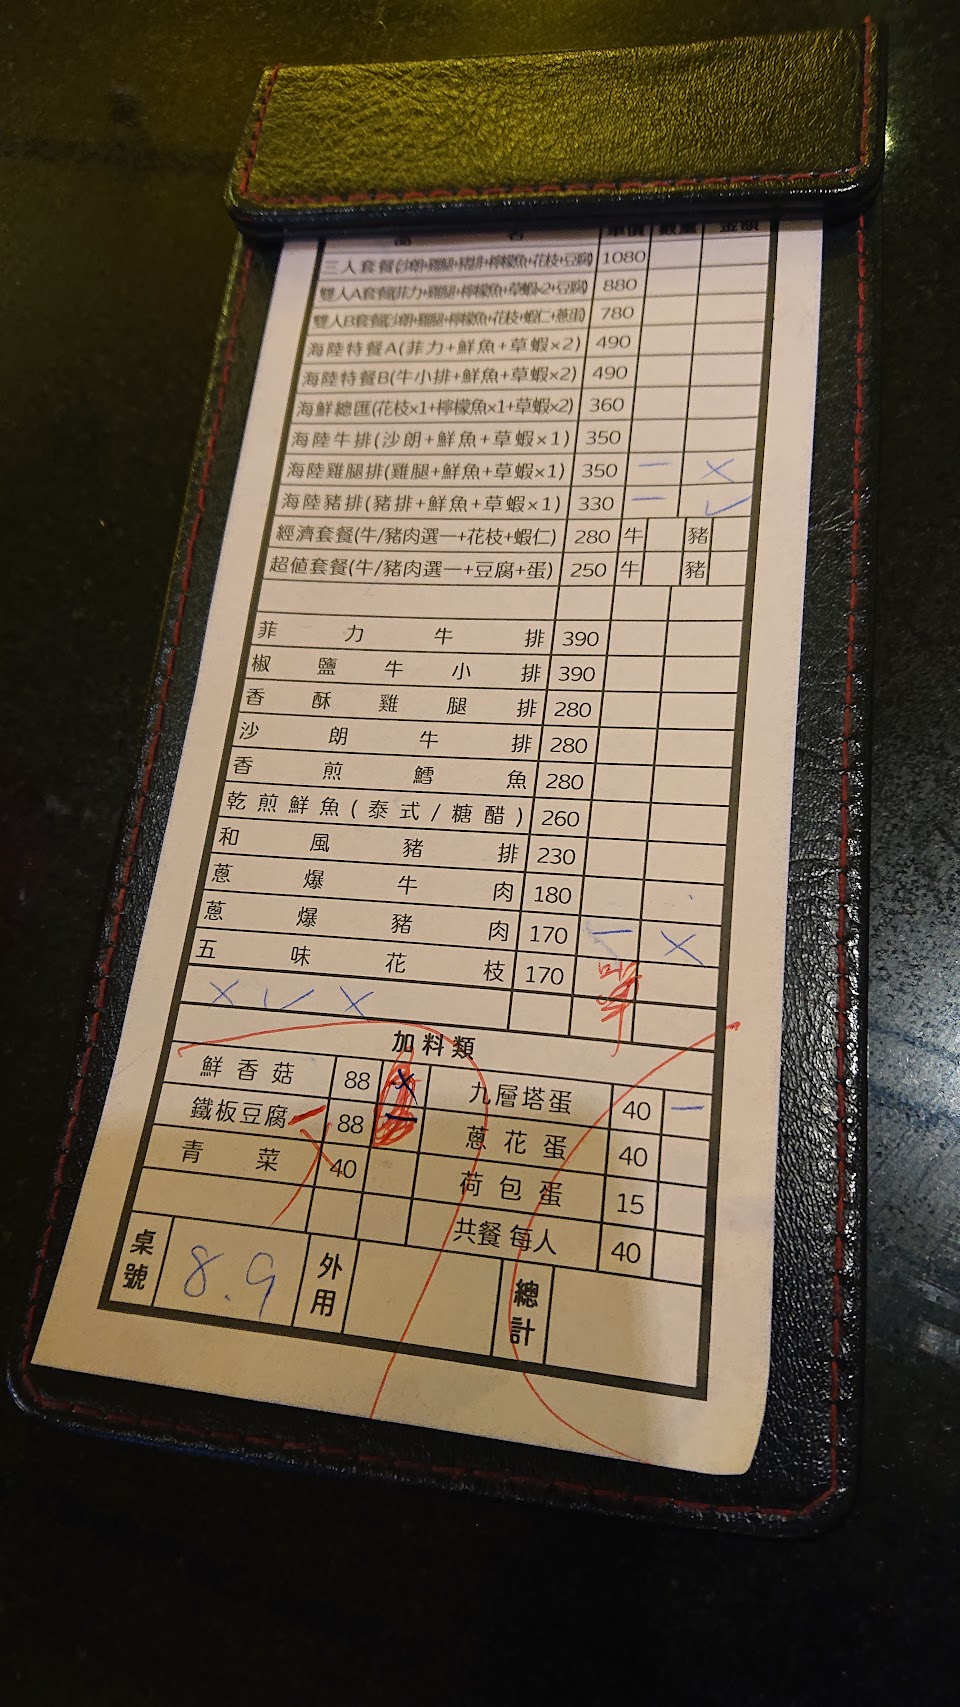 品 名 單價 數量 金額
三人套餐(沙朗+雞腿+豬排+檸檬魚+花枝+豆腐) 1080
雙人A套餐(菲力+雞腿+檸檬魚+草蝦×2+豆腐) 880
雙人B套餐(沙朗+雞腿+檸檬魚+花枝+蝦仁+蔥蛋) 780
海陸特餐A(菲力+鮮魚+草蝦×2) 490
海陸特餐B(牛小排+鮮魚+草蝦×2) 490
海鮮總匯(花枝×1+檸檬魚×1+草蝦×2) 360
海陸牛排(沙朗+鮮魚+草蝦×1) 350
海陸雞腿排(雞腿+鮮魚+草蝦×1) 350 一 ×
海陸豬排(豬排+鮮魚+草蝦×1) 330 一 ✓
經濟套餐(牛/豬肉選一+花枝+蝦仁) 280 牛 豬
超值套餐(牛/豬肉選一+豆腐+蛋) 250 牛 豬
菲力牛排 390
椒鹽牛小排 390
香酥雞腿排 280
沙朗牛排 280
香煎鱈魚 280
乾煎鮮魚(泰式/糖醋) 260
和風豬排 230
蔥爆牛肉 180
蔥爆豬肉 170 一 ×
五味花枝 170
× ✓ ×
加料類
鮮香菇 88 × 九層塔蛋 40 一
鐵板豆腐 88 一 蔥花蛋 40
青菜 40 荷包蛋 15
共餐每人 40
桌號 8.9 外用 總計